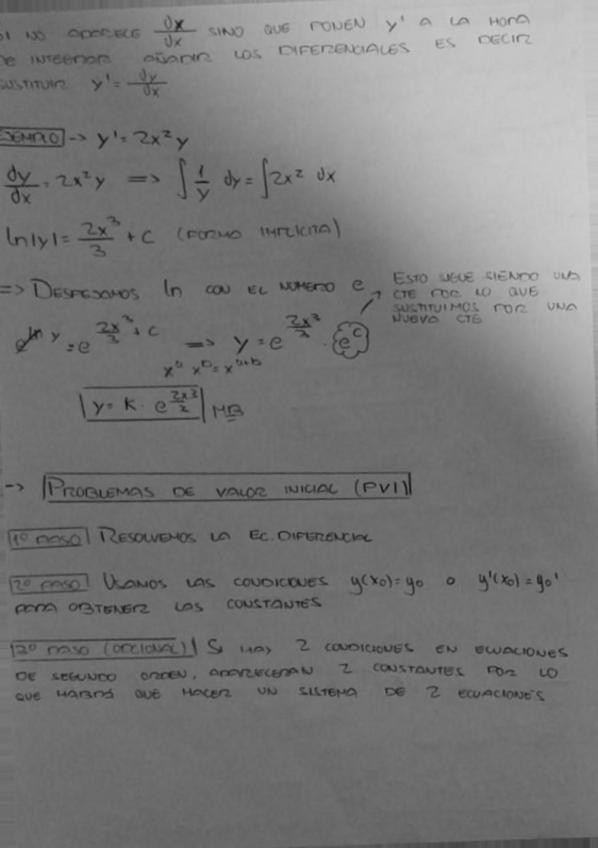 SI NO APARECE dx/dx SINO QUE PONEN y' A LA HORA
DE INTEGRAR AÑADIR LOS DIFERENCIALES ES DECIR
SUSTITUIR y' = dy/dx
EJEMPLO -> y' = 2x² y
dy/dx = 2x² y => ∫ 1/y dy = ∫ 2x² dx
ln|y| = 2x³/3 + C (FORMA IMPLICITA)
=> DESPEJAMOS ln CON EL NUMERO e
ESTO SIGUE SIENDO UNA
CTE POR LO QUE
SUSTITUIMOS POR UNA
NUEVA CTE
e^ln y = e^(2x³/3 + C) => y = e^(2x³/3) · e^C
x^a x^b = x^(a+b)
y = K · e^(2x³/2)
-> PROBLEMAS DE VALOR INICIAL (PVI)
1º PASO RESOLVEMOS LA EC. DIFERENCIAL
2º PASO USAMOS LAS CONDICIONES y(x0) = y0 o y'(x0) = y0'
PARA OBTENER LAS CONSTANTES
2º PASO (OPCIONAL) SI HAY 2 CONDICIONES EN ECUACIONES
DE SEGUNDO ORDEN, APARECERAN 2 CONSTANTES POR LO
QUE HABRÁ QUE HACER UN SISTEMA DE 2 ECUACIONES